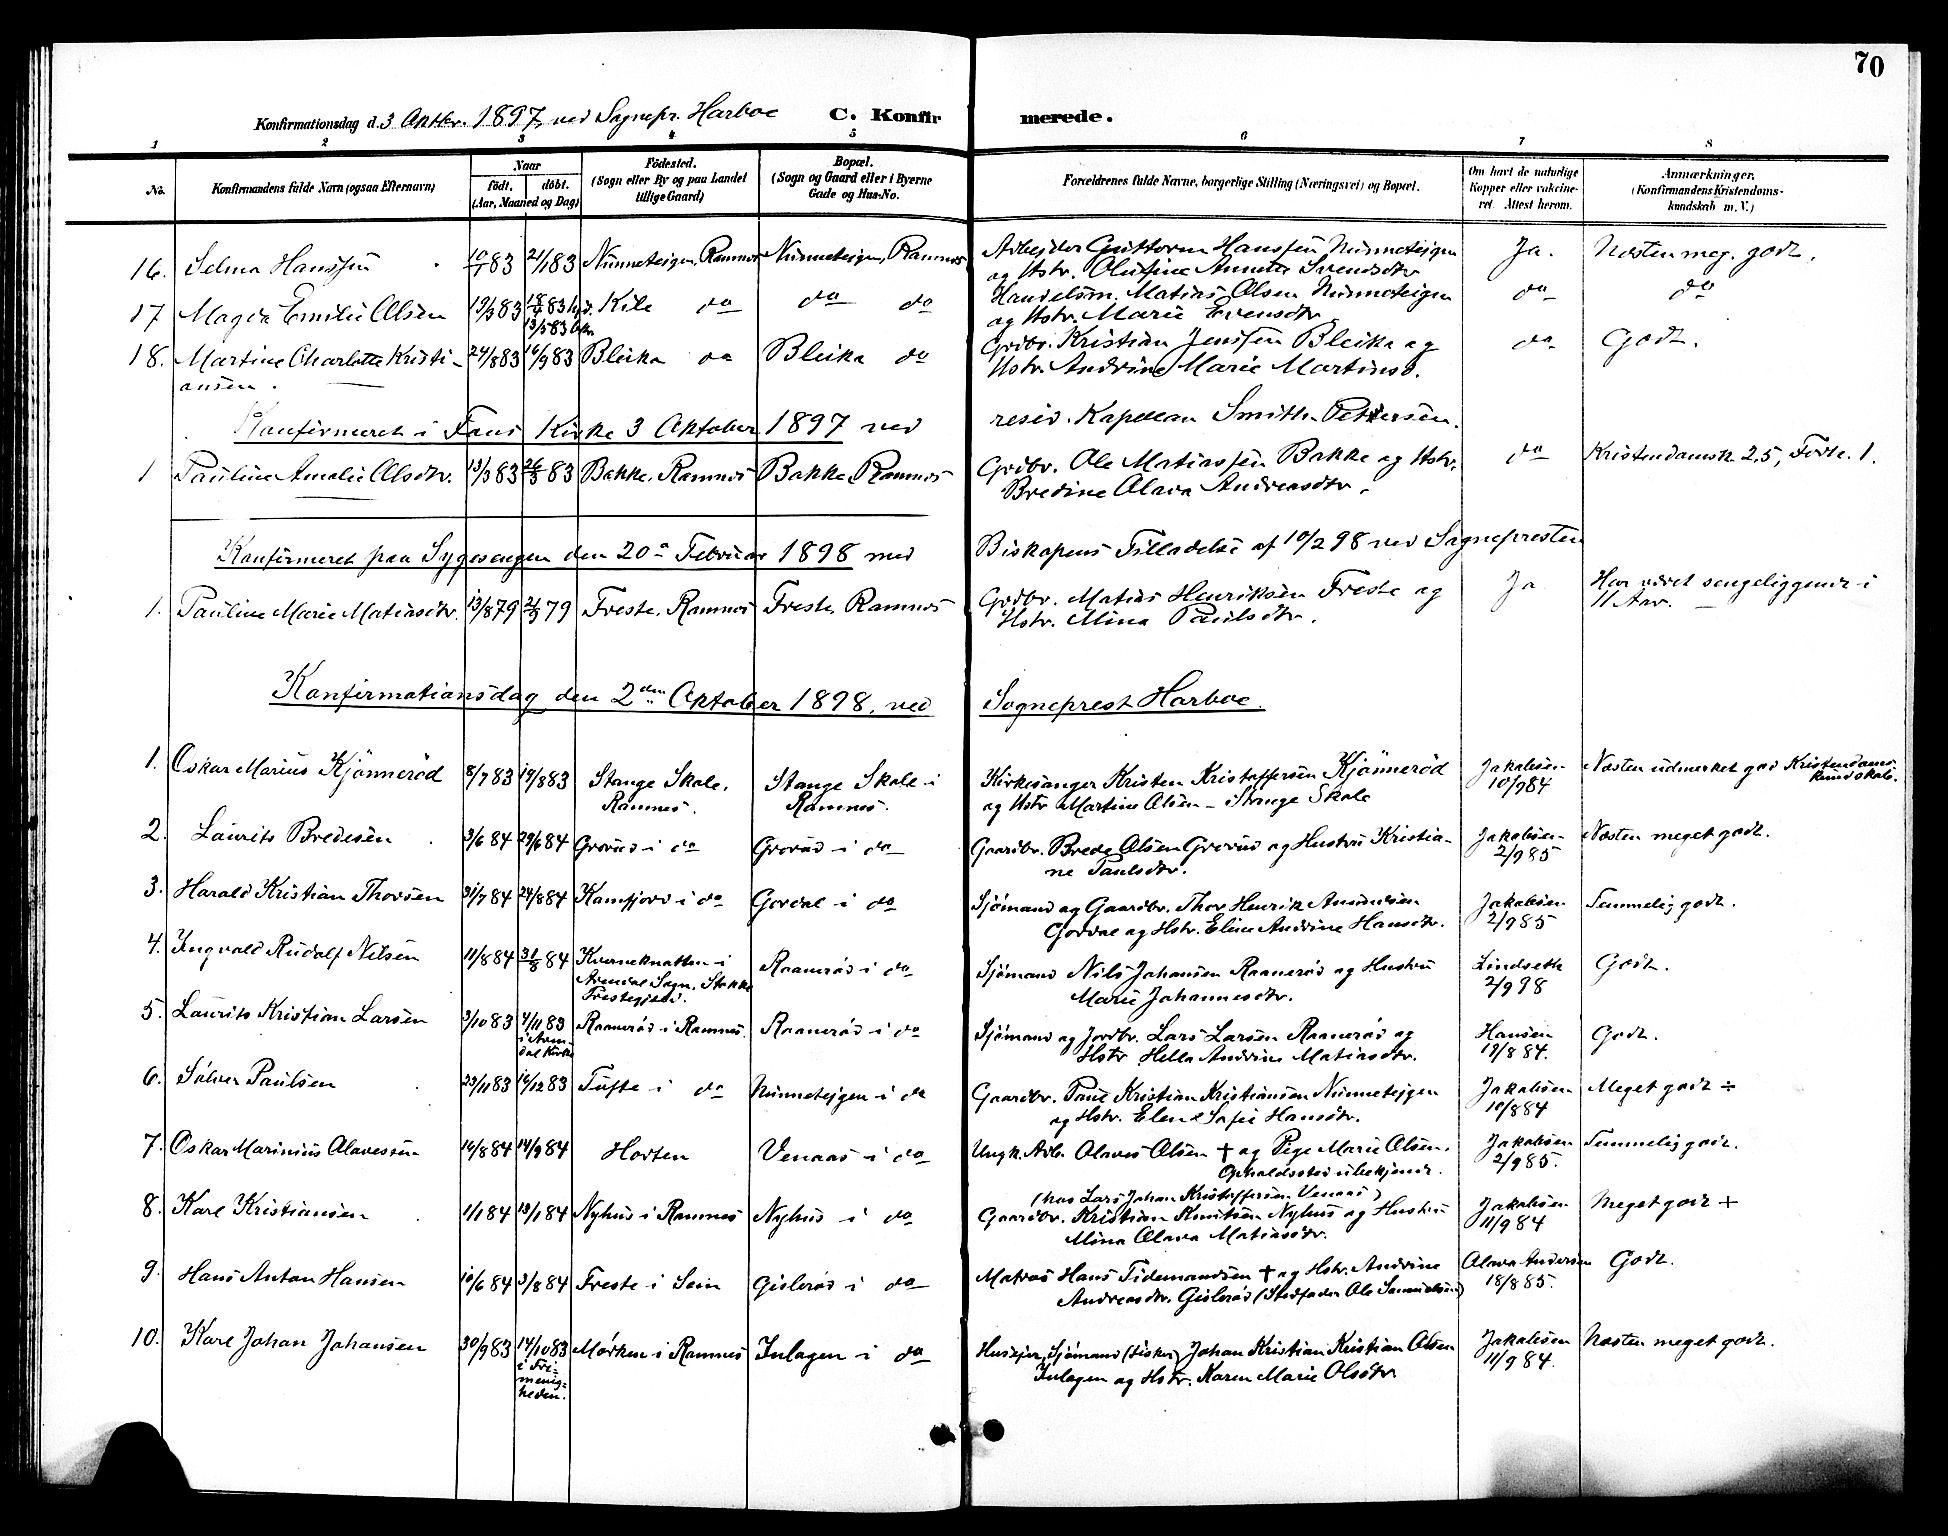 70
Konfirmationsdag d. 3 Oktbr. 1897, ved Sognepr. Harboe C. Konfirmerede.
1 2 3 4 5 6 7 8
No. Konfirmandens fulde Navn (ogsaa Efternavn) Naar födt. döbt. (Aar, Maaned og Dag) Födested. (Sogn eller By og paa Landet tillige Gaard) Bopæl. (Sogn og Gaard eller i Byerne Gade og Hus-No. Forældrenes fulde Navne, borgerlige Stilling (Næringsvei) og Bopæl. Om havt de naturlige Kopper eller vakcineret. Attest herom. Anmærkninger. (Konfirmandens Kristendomskundskab m. V.)
16. Selma Hanssen 10/1 83 21/1 83 Nünneteigen, Ramnes Nünneteigen, Ramnes Arbejder Guttorm Hanssen Nünneteigen Ja. Næsten meg. godt.
og Hstr. Olufine Annette Svendsdtr
17 Magda Emilie Olsen 19/3 83 18/4 83 hjd. Kile do do do Handelsm. Matias Olsen Nünneteigen do do
13/5 83 bkr. og Hstr. Marie Evensdtr
18. Martine Charlotte Kristi- 24/8 83 16/9 83 Bleika do Bleika do Grdbr. Kristian Jenssen Bleika og do Godt.
ansen. Hstr. Andrine Marie Martinsd.
Konfirmeret i Fons Kirke 3 Oktober 1897 ved resid. Kapellan Smith Petersen.
1 Pauline Amalie Olsdtr. 13/3 83 26/3 83 Bakke, Ramnes Bakke, Ramnes Grdbr. Ole Matiassen Bakke og Hstr. do Kristendomsk 2,5, Forte. 1.
Bredine Olava Andreasdtr.
Konfirmeret paa Sygesengen den 20de Februar 1898 med Biskopens Tilladelse af 10/2 98 ved Sognepresten
1. Pauline Marie Matiasdtr. 13/8 79 21/9 79 Freste, Ramnes Freste, Ramnes Grdbr. Matias Henriksen Freste og Ja Har været sengeliggende i
Hstr. Mina Paulsdtr. 11 Aar.
Konfirmationsdag den 2den Oktober 1898, ved Sogneprest Harboe.
1. Oskar Marius Kjönneröd 8/7 83 19/8 83 Stange Skole, Stange Skole i Kirkesanger Kristen Kristoffersen Kjönneröd Jakobsen Næsten udmerket god Kristendoms
Ramnes. Ramnes. og Hstr Martine Olsen – i Stange Skole 10/9 84 kundskab.
2. Laurits Bredesen 3/6 84 29/6 84 Grorud i do Grorud i do Gaardbr. Brede Olsen Grorud og Hustru Kristia- Jakobsen Næsten meget godt.
ne Paulsdtr. 2/9 85
3. Harald Kristian Thorsen 31/7 84 24/8 84 Kamfjord i do Gordal i do Sjömand og Gaardbr. Thor Henrik Amundsen Jakobsen Temmelig godt.
Gordal og Hstr. Eline Andrine Hansdtr. 2/9 85
4. Ingvald Rudolf Nilsen 11/8 84 31/8 84 Kverneknatten i Raaneröd i do Sjömand Nils Johansen Raaneröd og Hustru Lindseth Godt.
Arendal Sogn, Stokke Prestegjeld. Marie Johannesdtr. 2/9 98
5. Laurits Kristian Larsen 3/10 83 4/11 83 Raaneröd i Ramnes. Raaneröd i do Sjömand og Jordbr. Lars Larsen Raaneröd og Hansen Godt.
i Arendal Kirke Hstr Hella Andrine Matiasdtr. 19/8 84.
6. Sölver Paulsen 23/11 83 16/12 83 Tufte i do Nünneteigen i do Gaardbr. Paul Kristian Kristiansen Nünneteigen Jakobsen Meget godt ÷
og Hstr. Elen Sofie Hansdtr. 10/8 84
7. Oskar Marinius Olavessen 16/8 84 14/9 84 Horten Venaas i do Ungk. Arb. Olaves Olsen † og Pige Marie Olsen. Jakobsen Temmelig godt.
Opholdssted ubekjendt. 2/9 85.
(hos Lars Johan Kristoffersen Venaas)
8. Karl Kristiansen 1/1 84 13/1 84 Nyhus i Ramnes Nyhus i do Gaardbr. Kristian Knutsen Nyhus og Hustru Jakobsen Meget godt +
Mina Olava Matiasdtr. 11/9 84
9. Hans Anton Hansen 10/6 84 3/8 84 Freste i Sem Gisleröd i do Matros Hans Tidemandsen † og Hstr. Andrine Olava Andersen Godt.
Andreasdtr. Gisleröd (Stedfader Ole Samuelsen) 18/8 85.
10. Karl Johan Johansen 30/9 83 14/10 83 Mörken i Ramnes Inlagen i do Husejer, Sjömand (fisker) Johan Kristian Kristian Olsen Jakobsen Næsten meget godt.
i Frimenigheden. Inlagen og Hstr. Karen Marie Olsdtr 11/9 84.